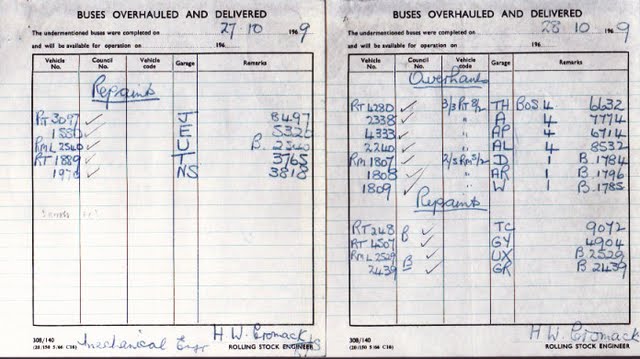 BUSES OVERHAULED AND DELIVERED
The undermentioned buses were completed on 27·10 1969
and will be available for operation on 196
Vehicle No. Council No. Vehicle code Garage Remarks
Repaints
RT 3097 ✓ J 8497
1880 ✓ E 5326
RML 2540 ✓ U B. 2540
RT 1889 ✓ T 3765
1976 ✓ NS 3818
308/140
Mechanical Engr H W Cromack
ROLLING STOCK ENGINEER
BUSES OVERHAULED AND DELIVERED
The undermentioned buses were completed on 28 10 1969
and will be available for operation on 196
Vehicle No. Council No. Vehicle code Garage Remarks
Overhauls
RT 4280 ✓ 3/3 RT 8/2 TH BOS 4 6632
2338 ✓ " A 4 7774
4333 ✓ " AP 4 6714
2240 ✓ " AL 4 8532
RM 1807 ✓ 2/5 RM 5/2 D 1 B. 1784
1808 ✓ " AR 1 B. 1796
1809 ✓ " W 1 B. 1785
Repaints
RT 248 B ✓ TC 9072
RT 4507 ✓ GY 4904
RML 2529 ✓ UX B 2529
2439 B ✓ GR B 2439
308/140
H W Cromack
ROLLING STOCK ENGINEER